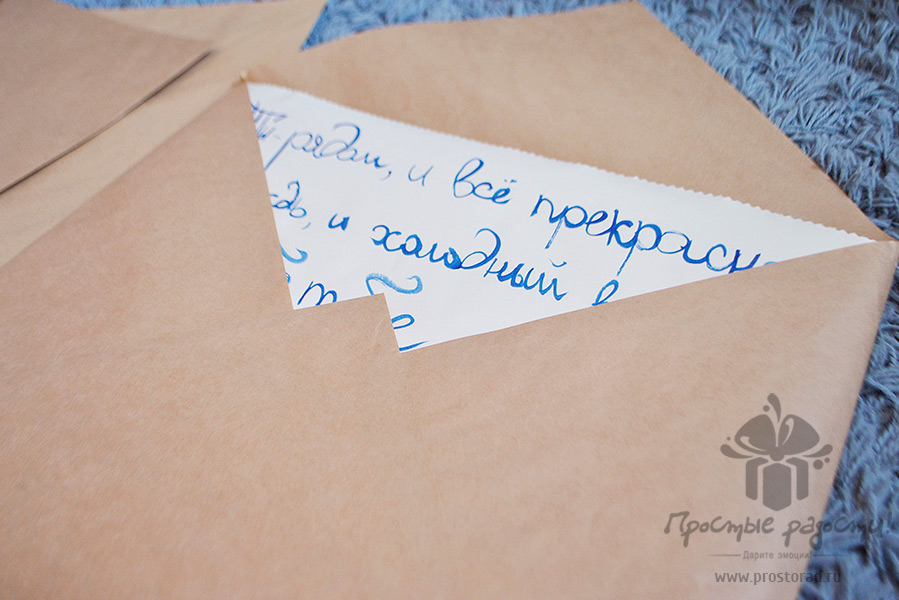 Ты рядом, и всё прекрасн
дь, и холодный в
т
Простые радости
Дарите эмоции!
www.prostorad.ru